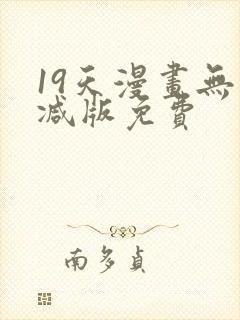 19天漫畫無
减版免費
南多貞